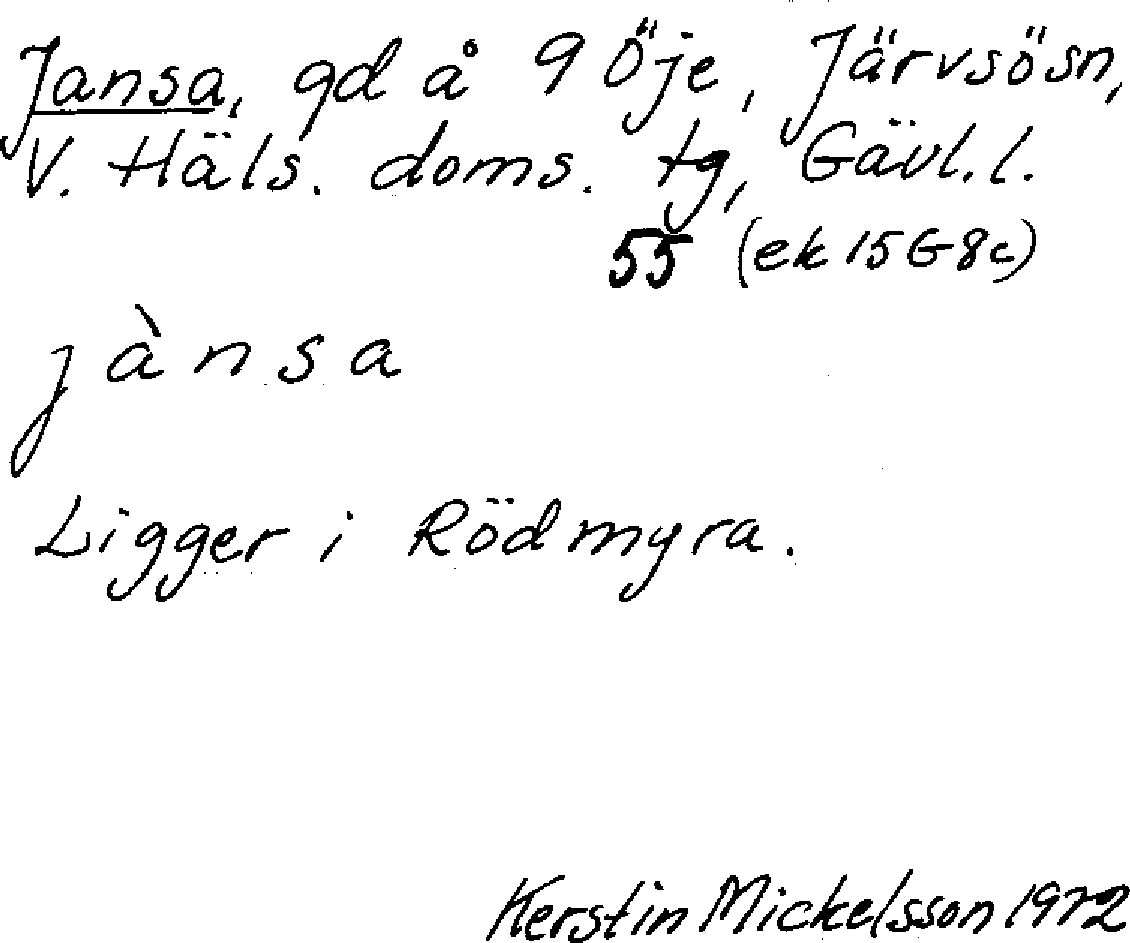 Jansa, gd å 9 Öje, Järvsösn,
V. Häls. doms. tg, Gävl. l.
55 (ek 15G8c)
jànsa
Ligger i Rödmyra.
Kerstin Mickelsson 1972